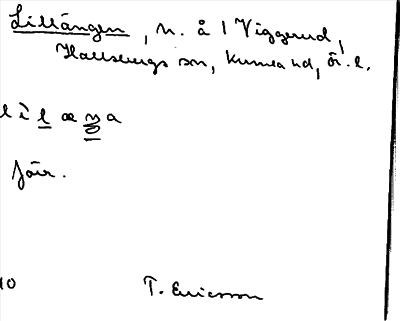 Lillängen, n. å 1 Viggerud,
Hallsbergs sn, Kumla hd, Ör. l.
lìlæŋa
Jär.
10
T. Ericsson